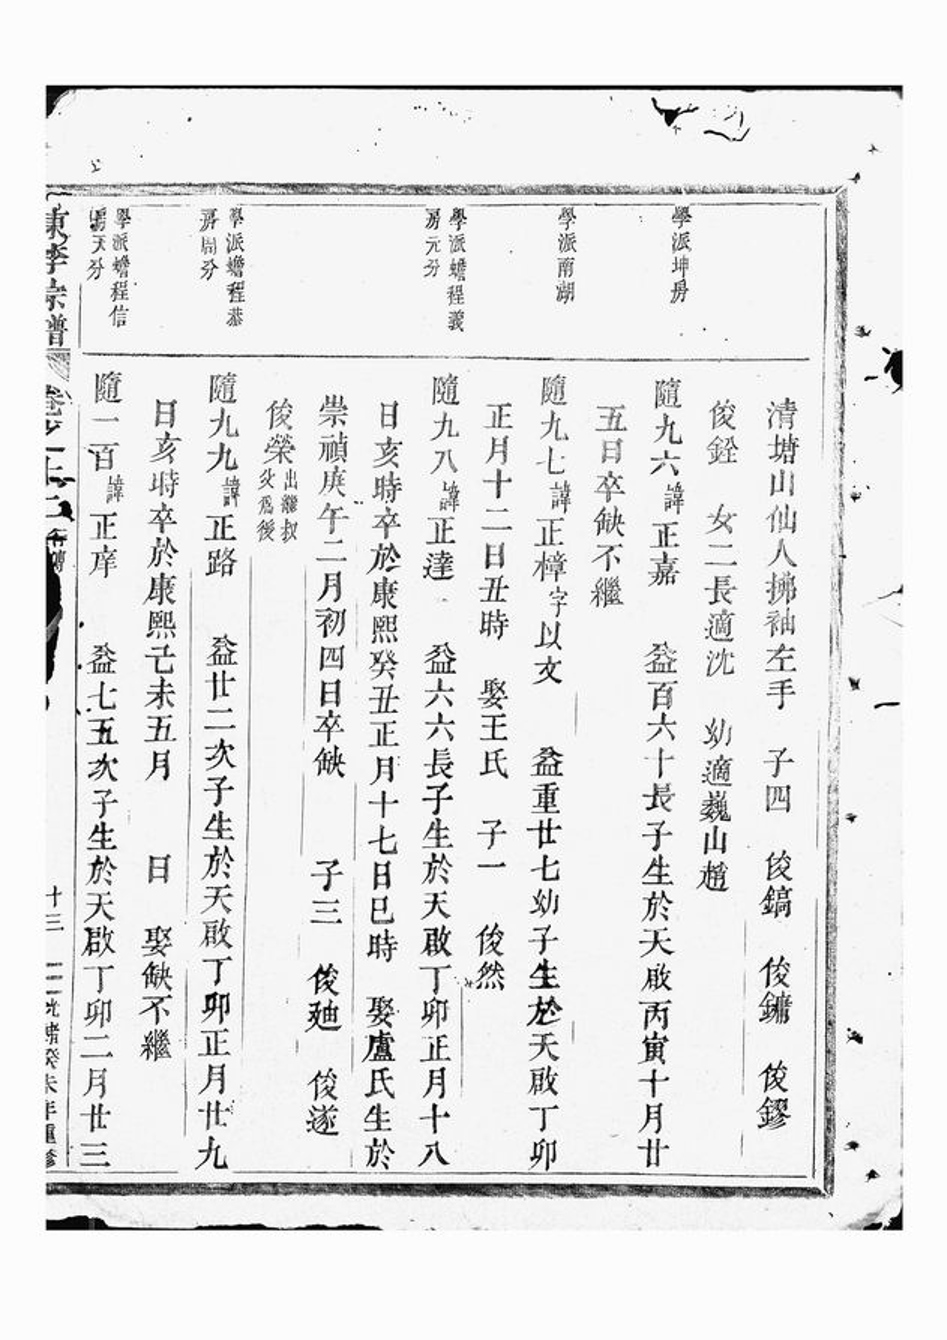 清塘山仙人拂袖左手　子四　俊鎬　俊鏞　俊鏐
俊銓　女二長適沈　幼適巍山趙
學派坤房
隨九六諱正嘉　益百六十長子生於天啟丙寅十月廿
五日卒缺不繼
學派南湖
隨九七諱正樟字以文　益重廿七幼子生於天啟丁卯
正月十二日丑時　娶王氏　子一　俊然
學派蟾程義
房元分
隨九八諱正達　益六六長子生於天啟丁卯正月十八
日亥時卒於康熙癸丑正月十七日巳時　娶盧氏生於
崇禎庚午二月初四日卒缺　子三　俊廸　俊遂
俊榮出繼叔
父爲後
學派蟾程恭
房周分
隨九九諱正路　益廿二次子生於天啟丁卯正月廿九
日亥時卒於康熙己未五月　日　娶缺不繼
學派蟾程信
房天分
隨一百諱正庠　益七五次子生於天啟丁卯二月廿三
東李宗譜　卷之　行傳　十三　光緒癸未年重修